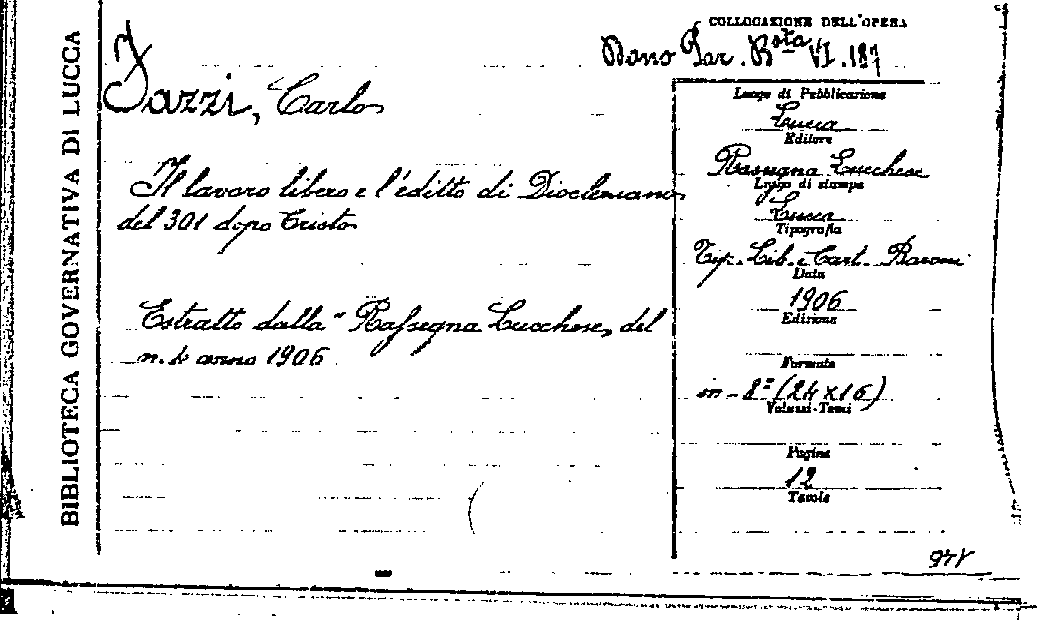 BIBLIOTECA GOVERNATIVA DI LUCCA
COLLOCAZIONE DELL'OPERA
Dono Par. Bsta VI. 187
Fazzi, Carlo
Il lavoro libero e l'editto di Diocleziano
del 301 dopo Cristo
Estratto dalla "Rassegna Lucchese, del
n. 4 anno 1906
Luogo di Pubblicazione
Lucca
Editore
Rassegna Lucchese
Luogo di stampa
Lucca
Tipografia
Tip. Lib. e Cart. Baroni
Data
1906
Edizione
Formato
in-8º (24x16)
Volumi-Tomi
Pagine
12
Tavole